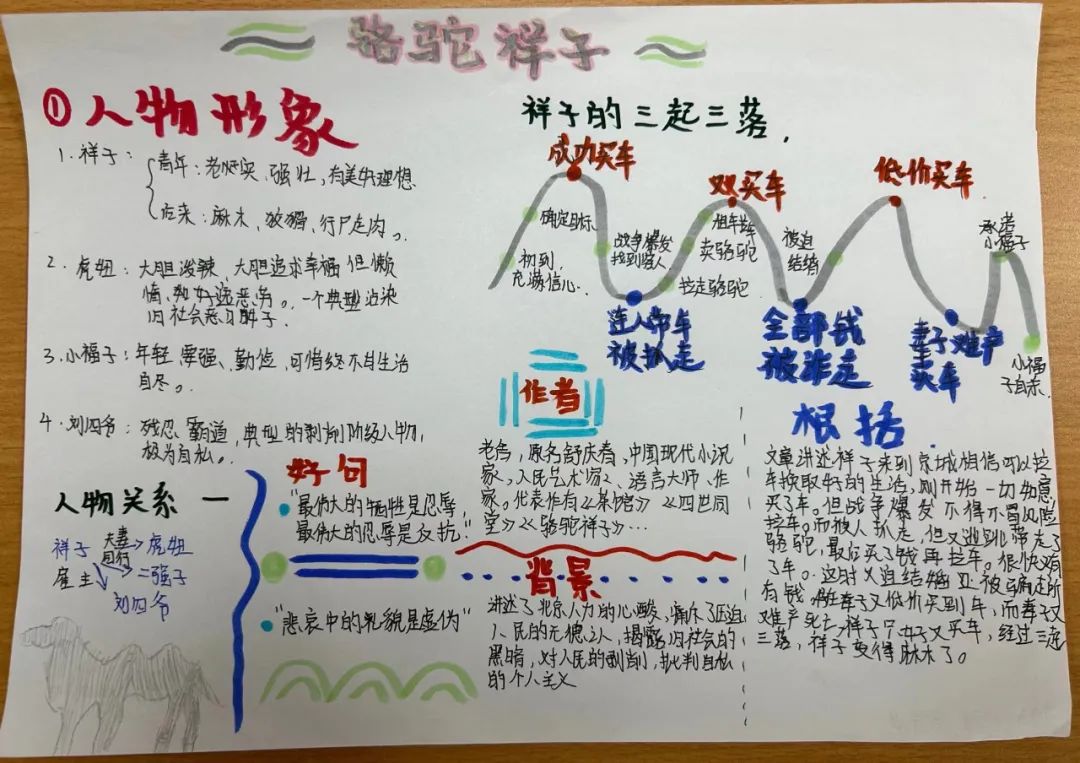 骆驼祥子
①人物形象
1. 祥子：
青年：老实、强壮，有美好理想
后来：麻木、狡猾、行尸走肉。
2. 虎妞：大胆泼辣、大胆追求幸福 但懒
惰、好逸恶劳。一个典型沾染
旧社会恶习
3. 小福子：年轻 要强、勤俭，可惜终不甘生活
自尽。
4. 刘四爷：残忍 霸道，典型的剥削阶级人物，
极为自私。
人物关系
祥子 夫妻 虎妞
雇主 同行 二强子
刘四爷
好句
"最伟大的牺牲是忍辱，
最伟大的忍辱是反抗"
"悲哀中的礼貌是虚伪"
祥子的三起三落
成功买车
双买车
低价买车
初到，
充满信心
确定目标
战争爆发
连人带车
被抓走
拉走骆驼
卖骆驼
被迫
结婚
全部钱
被诈走
妻子难产
卖车
小福子
小福
子自杀
作者
老舍，原名舒庆春，中国现代小说
家，人民艺术家、语言大师、作
家。代表作有《茶馆》《四世同
堂》《骆驼祥子》…
背景
讲述了北京人力的心酸，痛斥了压迫
人民的无德之人，揭露旧社会的
黑暗，对人民的剥削，批判自私
的个人主义
根括
文章讲述祥子来到京城相信可以拉
车换取好的生活，刚开始一切如意
买了车。但战争爆发不得不冒风险
拉车。而被人抓走，但又逃到带走了
骆驼，最后买了钱再拉车。很快又有
了车。这时又迫结婚且被骗走所
有钱。妻子又低价买到车，而妻子又
难产死亡，祥子又买车，经过三起
三落，祥子变得麻木了。